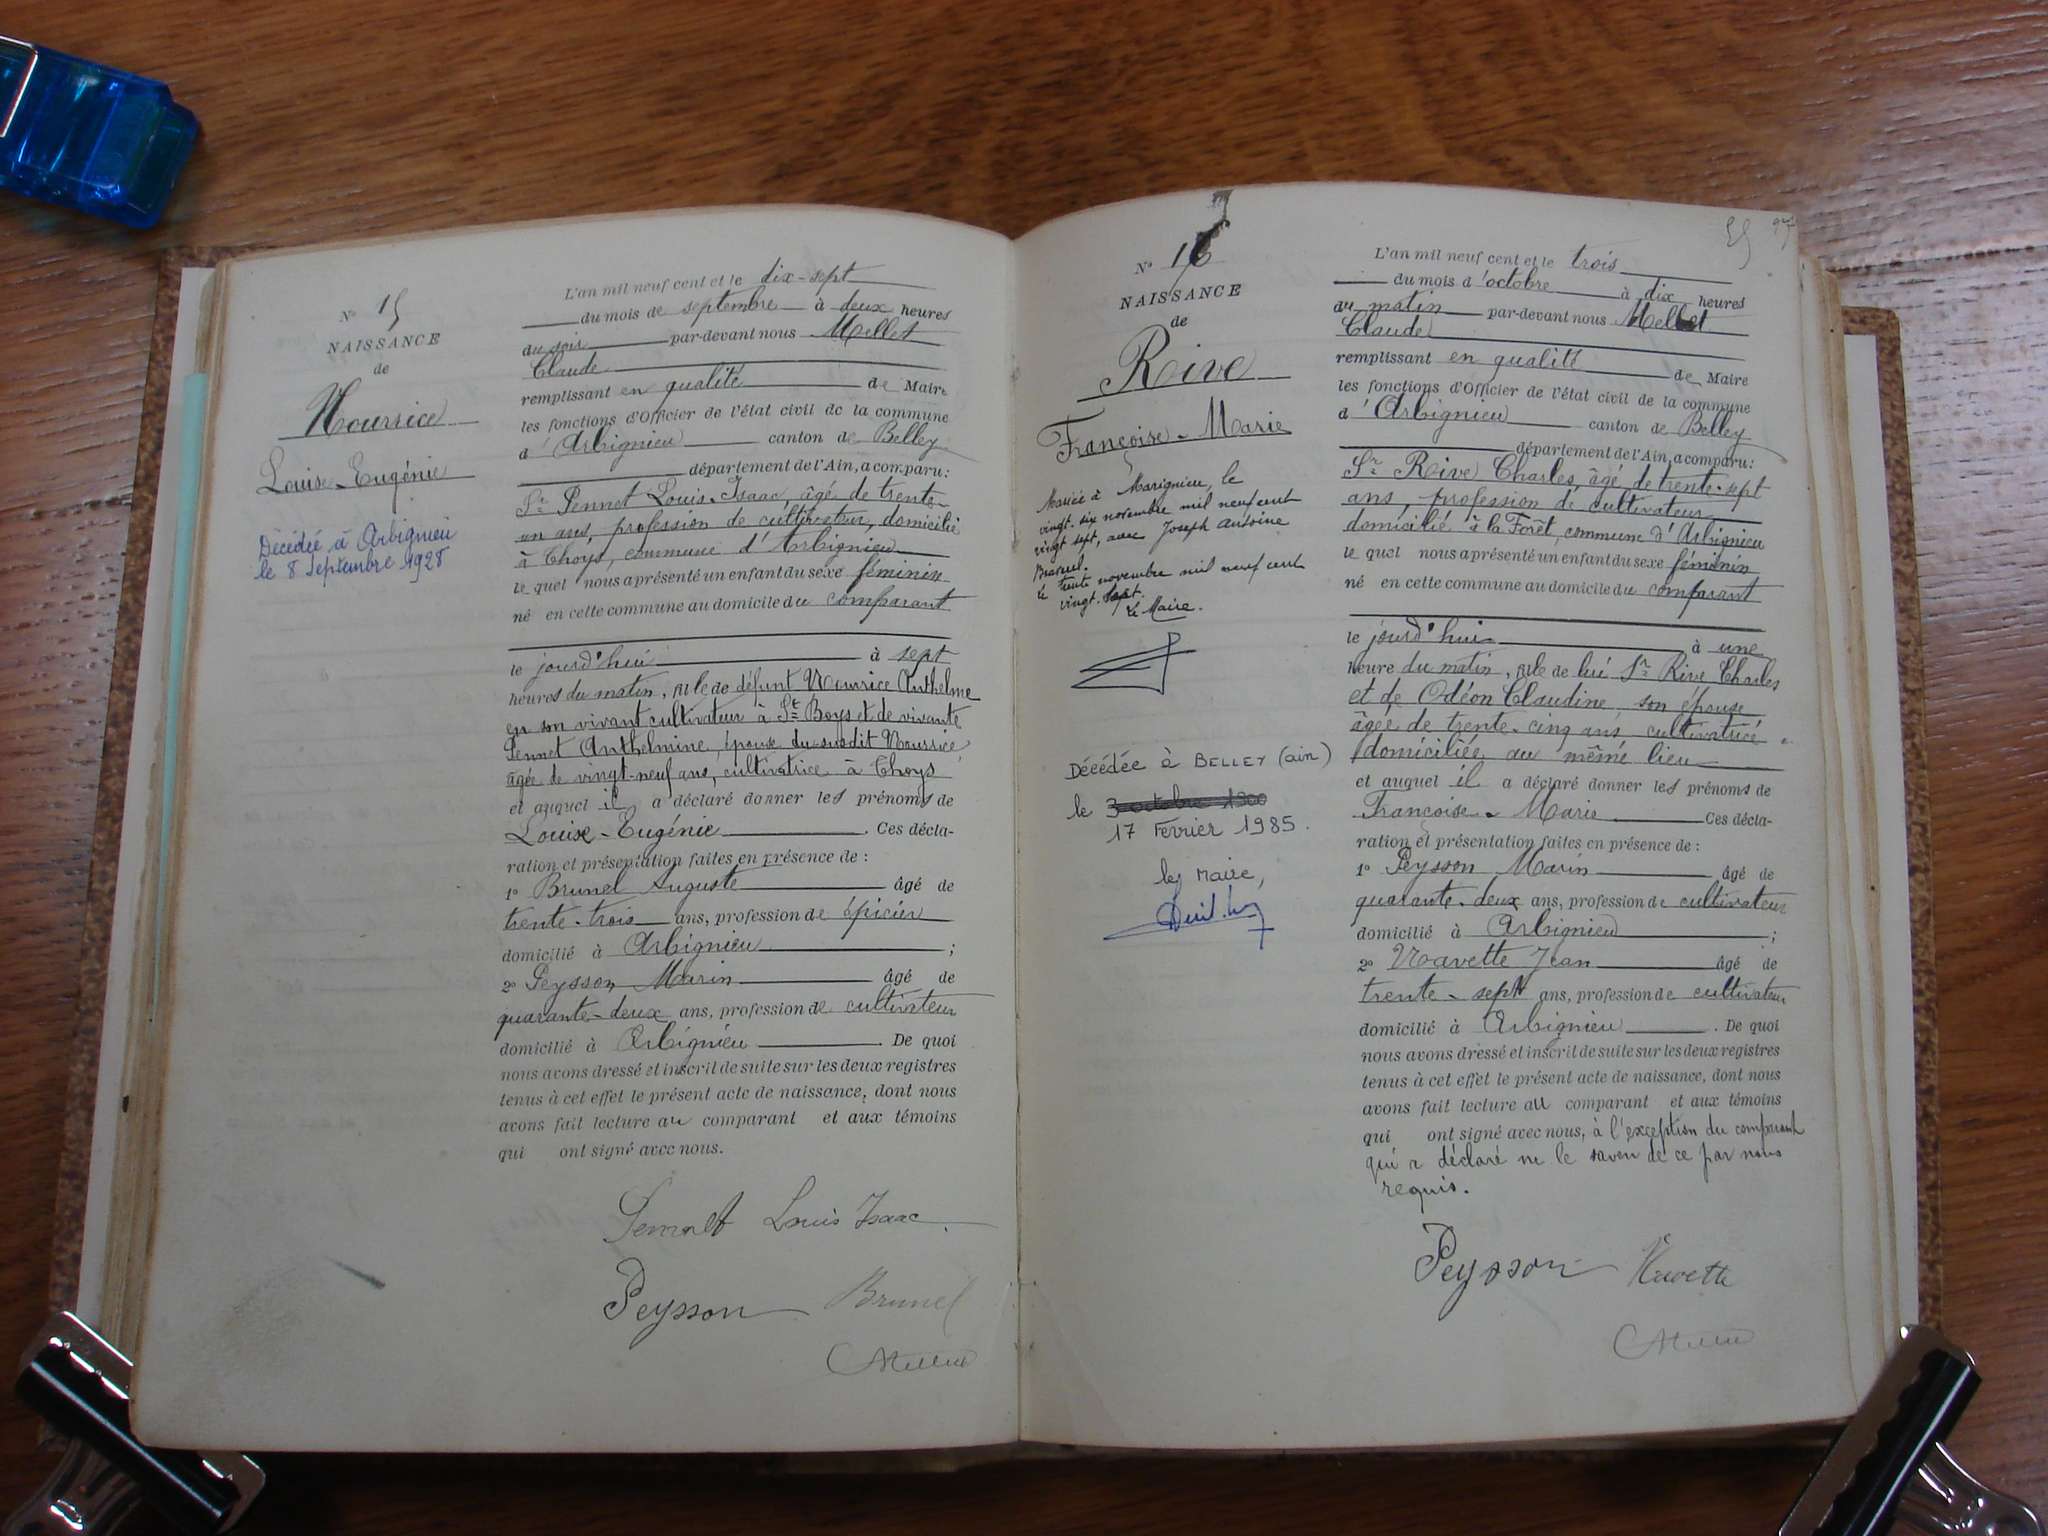 N° 15
NAISSANCE
de
Nourrice
Louise-Eugénie
Décédée à Arbignieu
le 8 Septembre 1928
L'an mil neuf cent et le dix-sept
du mois de septembre à deux heures
du soir par-devant nous Mellet
Claude
remplissant en qualité de Maire
les fonctions d'Officier de l'état civil de la commune
d'Arbignieu canton de Belley
département de l'Ain, a comparu:
Sr Pennet Louis-Isaac, âgé de trente-
un ans, profession de cultivateur, domicilié
à Thoys, commune d'Arbignieu
le quel nous a présenté un enfant du sexe féminin
né en cette commune au domicile du comparant
le jourd'hui à sept
heures du matin, fille de défunt Nourrice Anthelme
en son vivant cultivateur à St Boys et de vivante
Pennet Anthelmine, épouse du susdit Nourrice
âgée de vingt-neuf ans, cultivatrice à Thoys
et auquel il a déclaré donner les prénoms de
Louise-Eugénie. Ces décla-
ration et présentation faites en présence de :
1° Brunel Auguste âgé de
trente-trois ans, profession de épicier
domicilié à Arbignieu ;
2° Peysson Marin âgé de
quarante-deux ans, profession de cultivateur
domicilié à Arbignieu. De quoi
nous avons dressé et inscrit de suite sur les deux registres
tenus à cet effet le présent acte de naissance, dont nous
avons fait lecture au comparant et aux témoins
qui ont signé avec nous.
Pennet Louis Isaac
Peysson Brunel
CMellet
25 97
N° 16
NAISSANCE
de
Rive
Françoise-Marie
Mariée à Marignieu, le
vingt-six novembre mil neuf cent
vingt sept, avec Joseph Antoine
le trente novembre mil neuf cent
vingt-sept.
Le Maire.
Décédée à BELLEY (ain)
le 3 octobre 1900
17 Février 1985.
le Maire,
L'an mil neuf cent et le trois
du mois d'octobre à dix heures
du matin par-devant nous Mellet
Claude
remplissant en qualité de Maire
les fonctions d'Officier de l'état civil de la commune
d'Arbignieu canton de Belley
département de l'Ain, a comparu:
Sr Rive Charles, âgé de trente-sept
ans, profession de cultivateur
domicilié à la Forêt, commune d'Arbignieu
le quel nous a présenté un enfant du sexe féminin
né en cette commune au domicile du comparant
le jourd'hui à une
heure du matin, fille de lui Sr Rive Charles
et de Odéon Claudine son épouse
âgée de trente-cinq ans cultivatrice
domiciliée au même lieu
et auquel il a déclaré donner les prénoms de
Françoise-Marie Ces décla-
ration et présentation faites en présence de :
1° Peysson Marin âgé de
quarante-deux ans, profession de cultivateur
domicilié à Arbignieu ;
2° Navette Jean âgé de
trente-sept ans, profession de cultivateur
domicilié à Arbignieu. De quoi
nous avons dressé et inscrit de suite sur les deux registres
tenus à cet effet le présent acte de naissance, dont nous
avons fait lecture au comparant et aux témoins
qui ont signé avec nous, à l'exception du comparant
qui a déclaré ne le savoir de ce par nous
requis.
Peysson Navette
CMellet